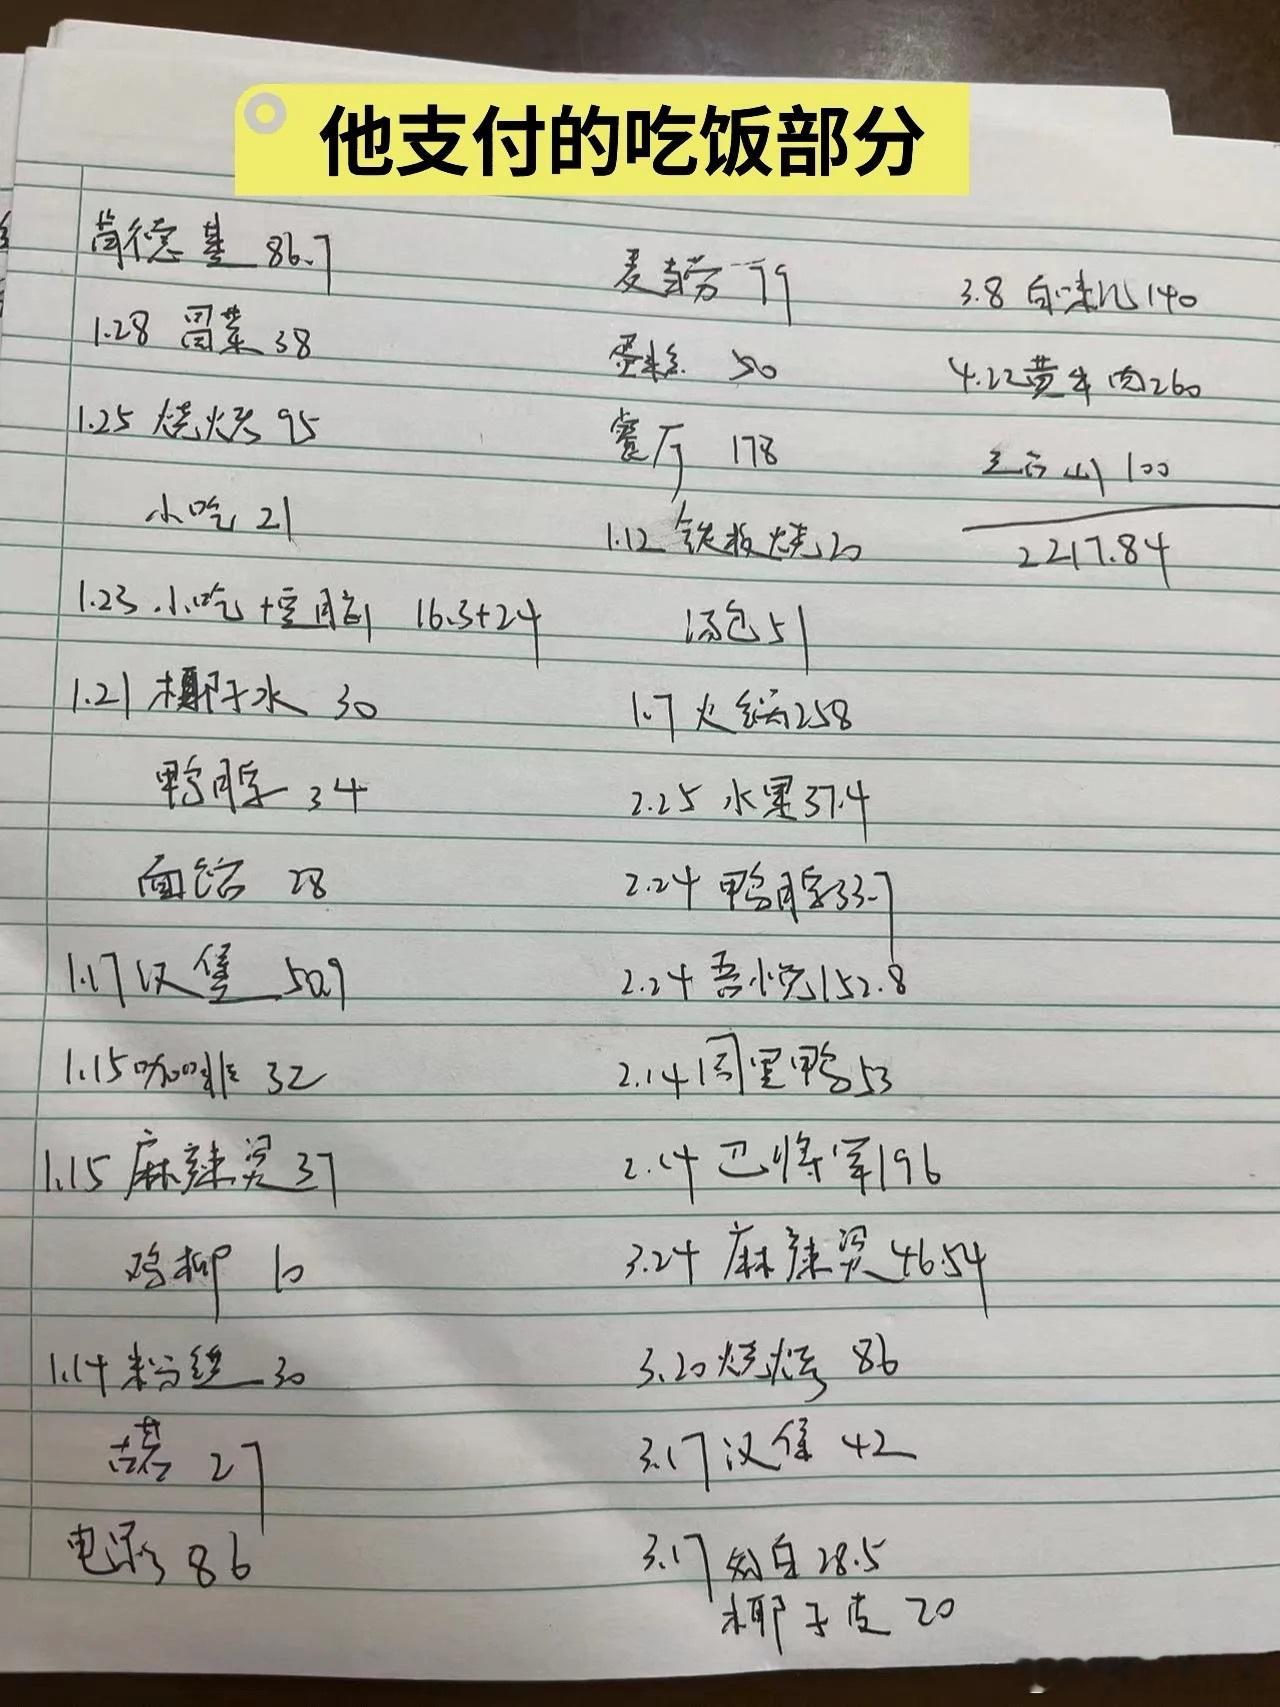 他支付的吃饭部分
肯德基 86.7
1.28 冒菜 38
1.25 烧烤 95
小吃 21
1.23 小吃+宣 16.3+24
1.21 椰子水 30
鸭脖 34
面馆 28
1.17 汉堡 50.9
1.15 咖啡 32
1.15 麻辣烫 37
鸡柳 10
1.14 粉丝 30
古茗 27
电影 86
麦当劳 79
蛋糕 50
餐厅 178
1.12 铁板烧 20
汤包 51
1.7 火锅 258
2.25 水果 37.4
2.24 鸭脖 33.7
2.24 吾悦 152.8
2.14 周黑鸭 53
2.14 巴将军 196
3.24 麻辣烫 46.54
3.20 烧烤 86
3.17 汉堡 42
3.17 对白 28.5
椰子皮 20
3.8 自味 140
4.22 黄牛肉 260
山 100
2217.84